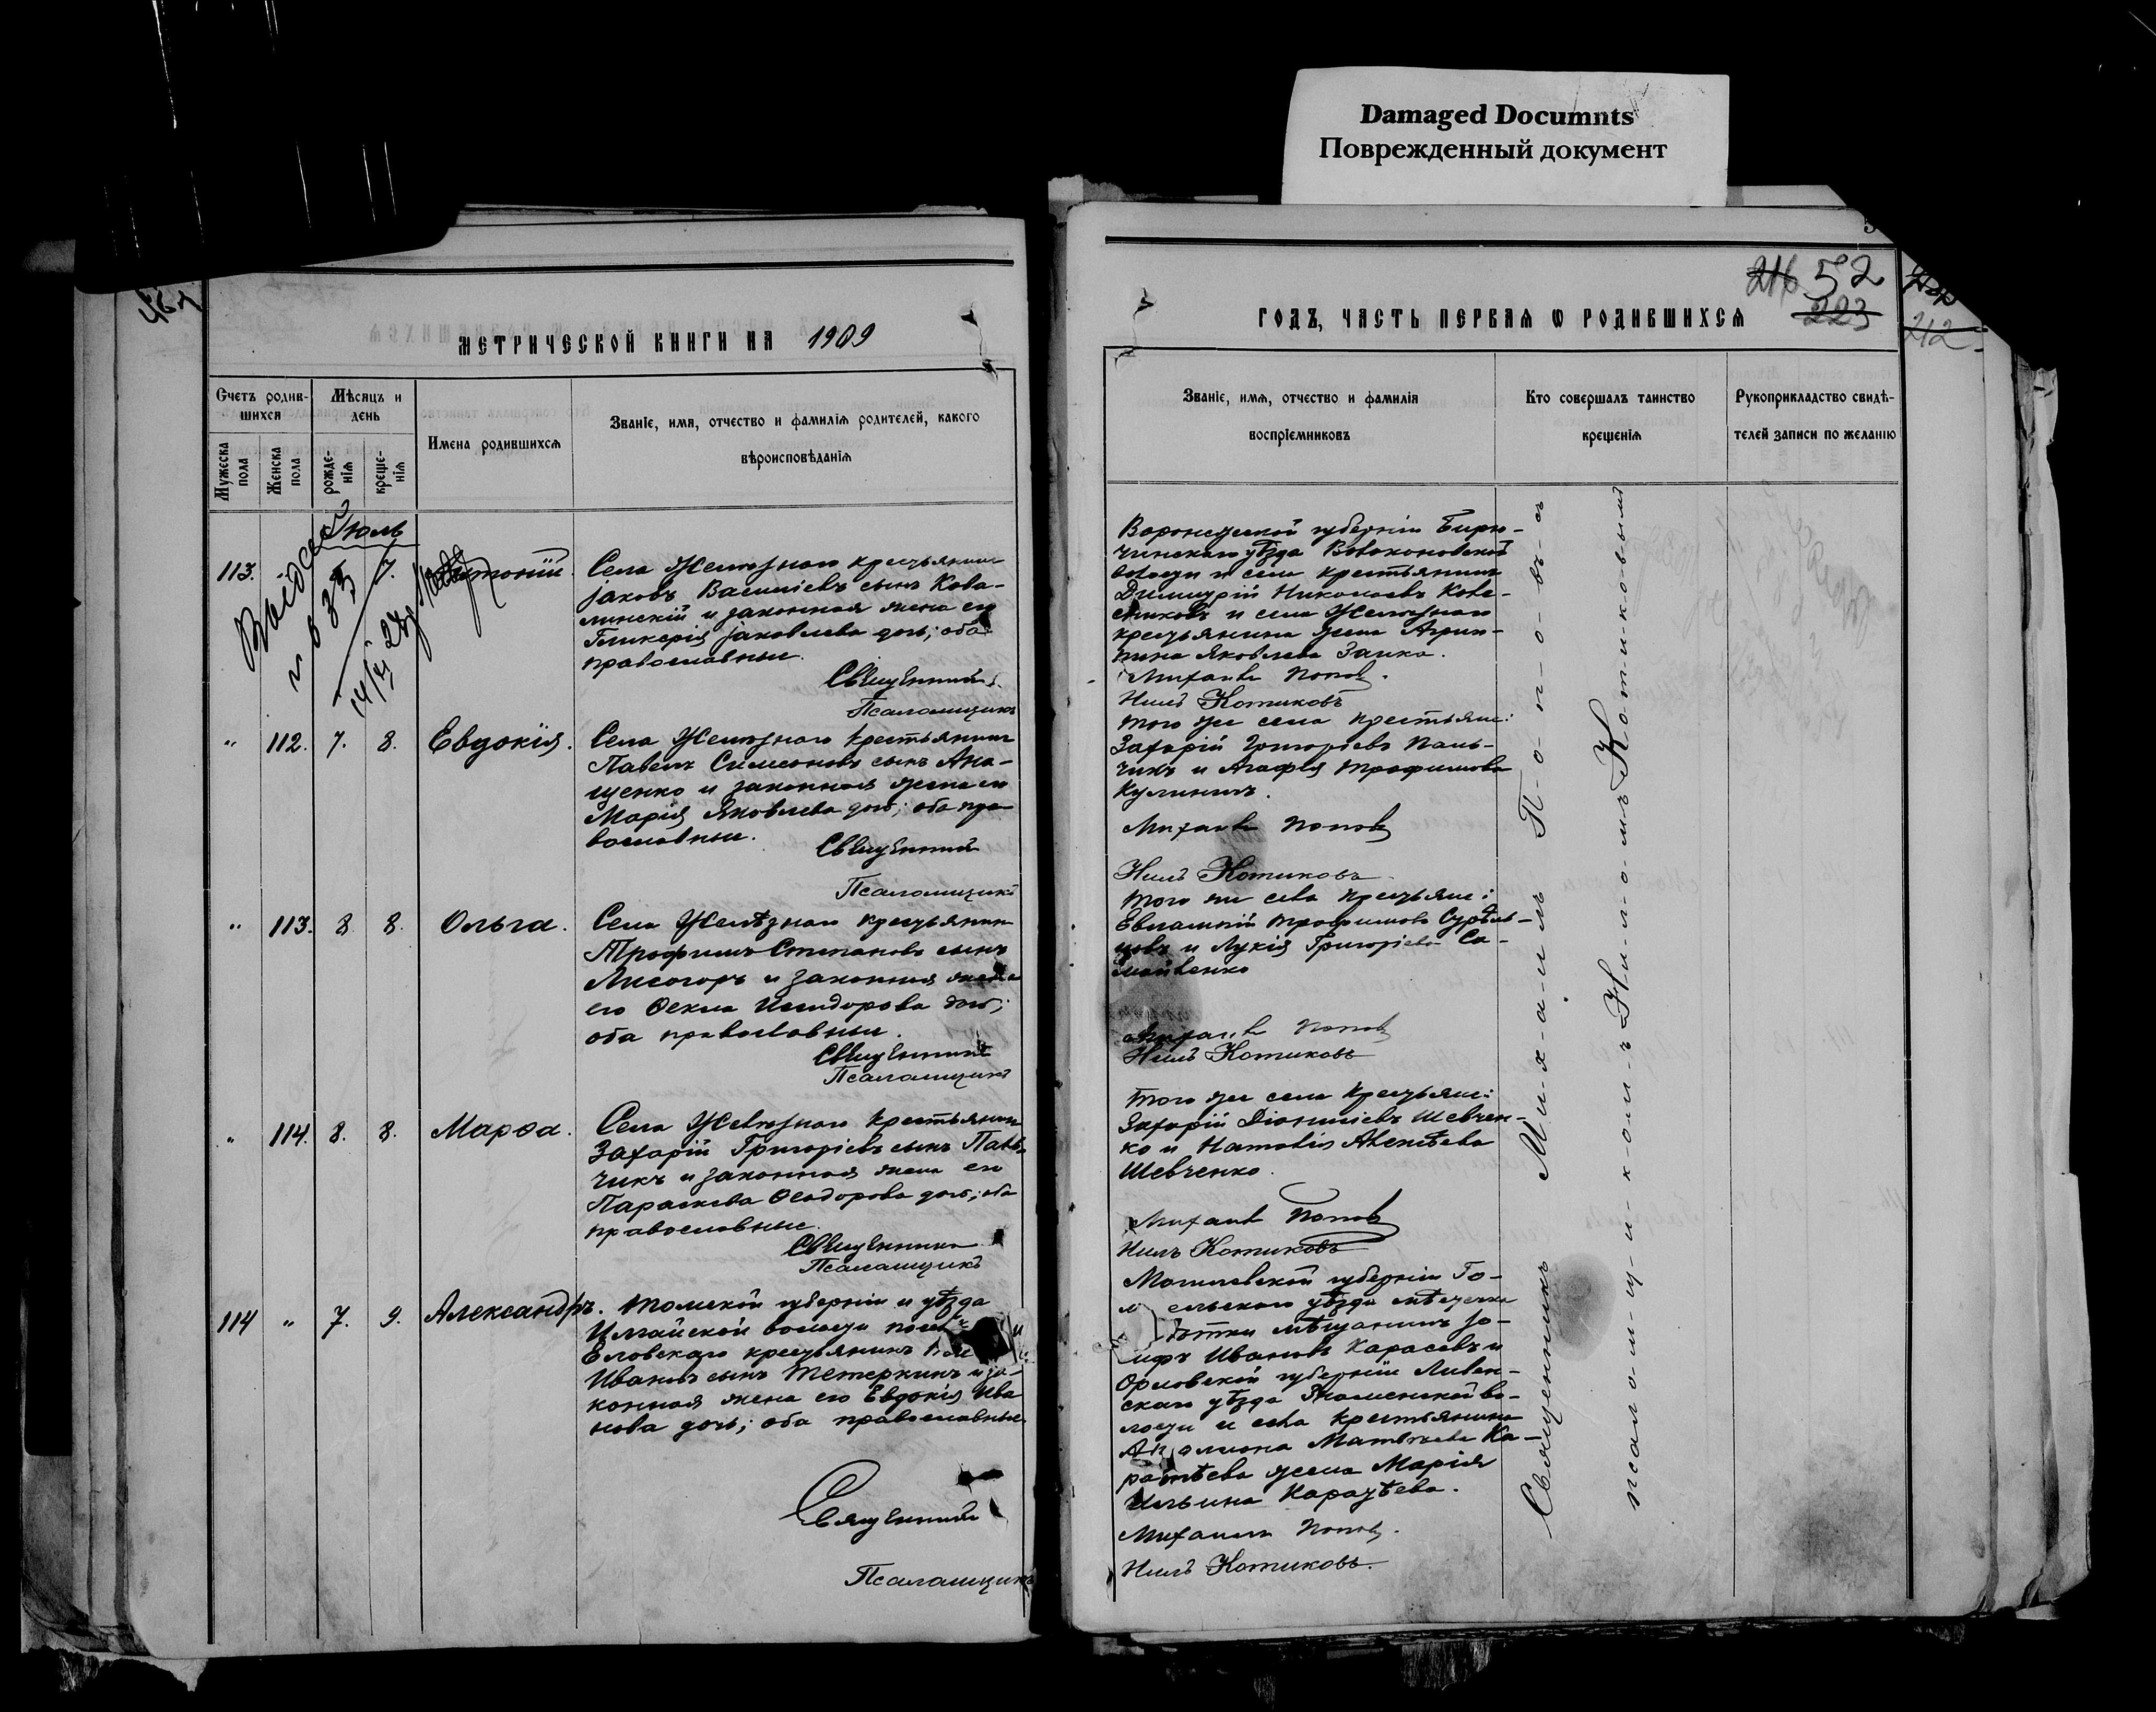 Damaged Documnts
Поврежденный документ
МЕТРИЧЕСКОЙ КНИГИ НА 1909
Счетъ родив-
шихся
Мѣсяцъ и
день
Мужеска
пола
Женска
пола
рожде-
нія
креще-
нія
Имена родившихся
Званіе, имя, отчество и фамилія родителей, какого
вѣроисповѣданія
Іюль
113.
7.
Села Желѣзнаго крестьянинъ
Яковъ Василіевъ сынъ Кова-
линскій и законная жена его
Гликерія Яковлева дочь; оба
православные.
Священникъ
Псаломщикъ
" 112. 7. 8. Евдокія.
Села Желѣзнаго крестьянинъ
Павелъ Симеоновъ сынъ Ана-
щенко и законная жена его
Марія Яковлева дочь; оба пра-
вославные.
Священникъ
Псаломщикъ
" 113. 8. 8. Ольга.
Села Желѣзнаго крестьянинъ
Трофимъ Стефановъ сынъ
Лисогоръ и законная жена
его Ѳекла Исидорова дочь;
оба православные.
Священникъ
Псаломщикъ
" 114. 8. 8. Марѳа.
Села Желѣзнаго крестьянинъ
Захарій Григоріевъ сынъ Пань-
чикъ и законная жена его
Параскева Ѳеодорова дочь; оба
православные.
Священникъ
Псаломщикъ
114 " 7. 9. Александръ.
Томской губерніи и уѣзда
волости
Еловскаго крестьянинъ
Ивановъ сынъ Тетеркинъ и за-
конная жена его Евдокія Ива-
нова дочь; оба православные.
Священникъ
Псаломщикъ
216 52
223
212
ГОДЪ, ЧАСТЬ ПЕРВАЯ Ѡ РОДИВШИХСЯ
Званіе, имя, отчество и фамилія
воспріемниковъ
Кто совершалъ таинство
крещенія
Рукоприкладство свидѣ-
телей записи по желанію
Воронежской губерніи Бирю-
чинскаго уѣзда
волости и села крестьянинъ
Димитрій Николаевъ Кове-
и села Желѣзнаго
крестьянина жена Агрип-
пина Яковлева Заика.
Михаилъ Поповъ.
Нилъ Котиковъ
Того же села крестьяне:
Захарій Григоріевъ Пань-
чикъ и Агафія Трофимова
Кулиничъ.
Михаилъ Поповъ
Нилъ Котиковъ
Того же села крестьяне:
Евлампій Трофимовъ
и Лукія Григоріева Са-
мойленко
Михаилъ Поповъ
Нилъ Котиковъ
Того же села крестьяне:
Захарій Діонисіевъ Шевчен-
ко и Наталія Алексѣева
Шевченко.
Михаилъ Поповъ
Нилъ Котиковъ
Могилевской губерніи Го-
мельскаго уѣзда мѣстечка
мѣщанинъ Іо-
сифъ Ивановъ Карасевъ и
Орловской губерніи Ливен-
скаго уѣзда Знаменской во-
лости и села крестьянина
Матвѣева Ка-
ратѣева жена Марія
Ильина Каратѣева.
Михаилъ Поповъ.
Нилъ Котиковъ.
Священникъ Михаилъ П-о-п-о-въ-съ
псаломщикомъ Ниломъ Котиковымъ